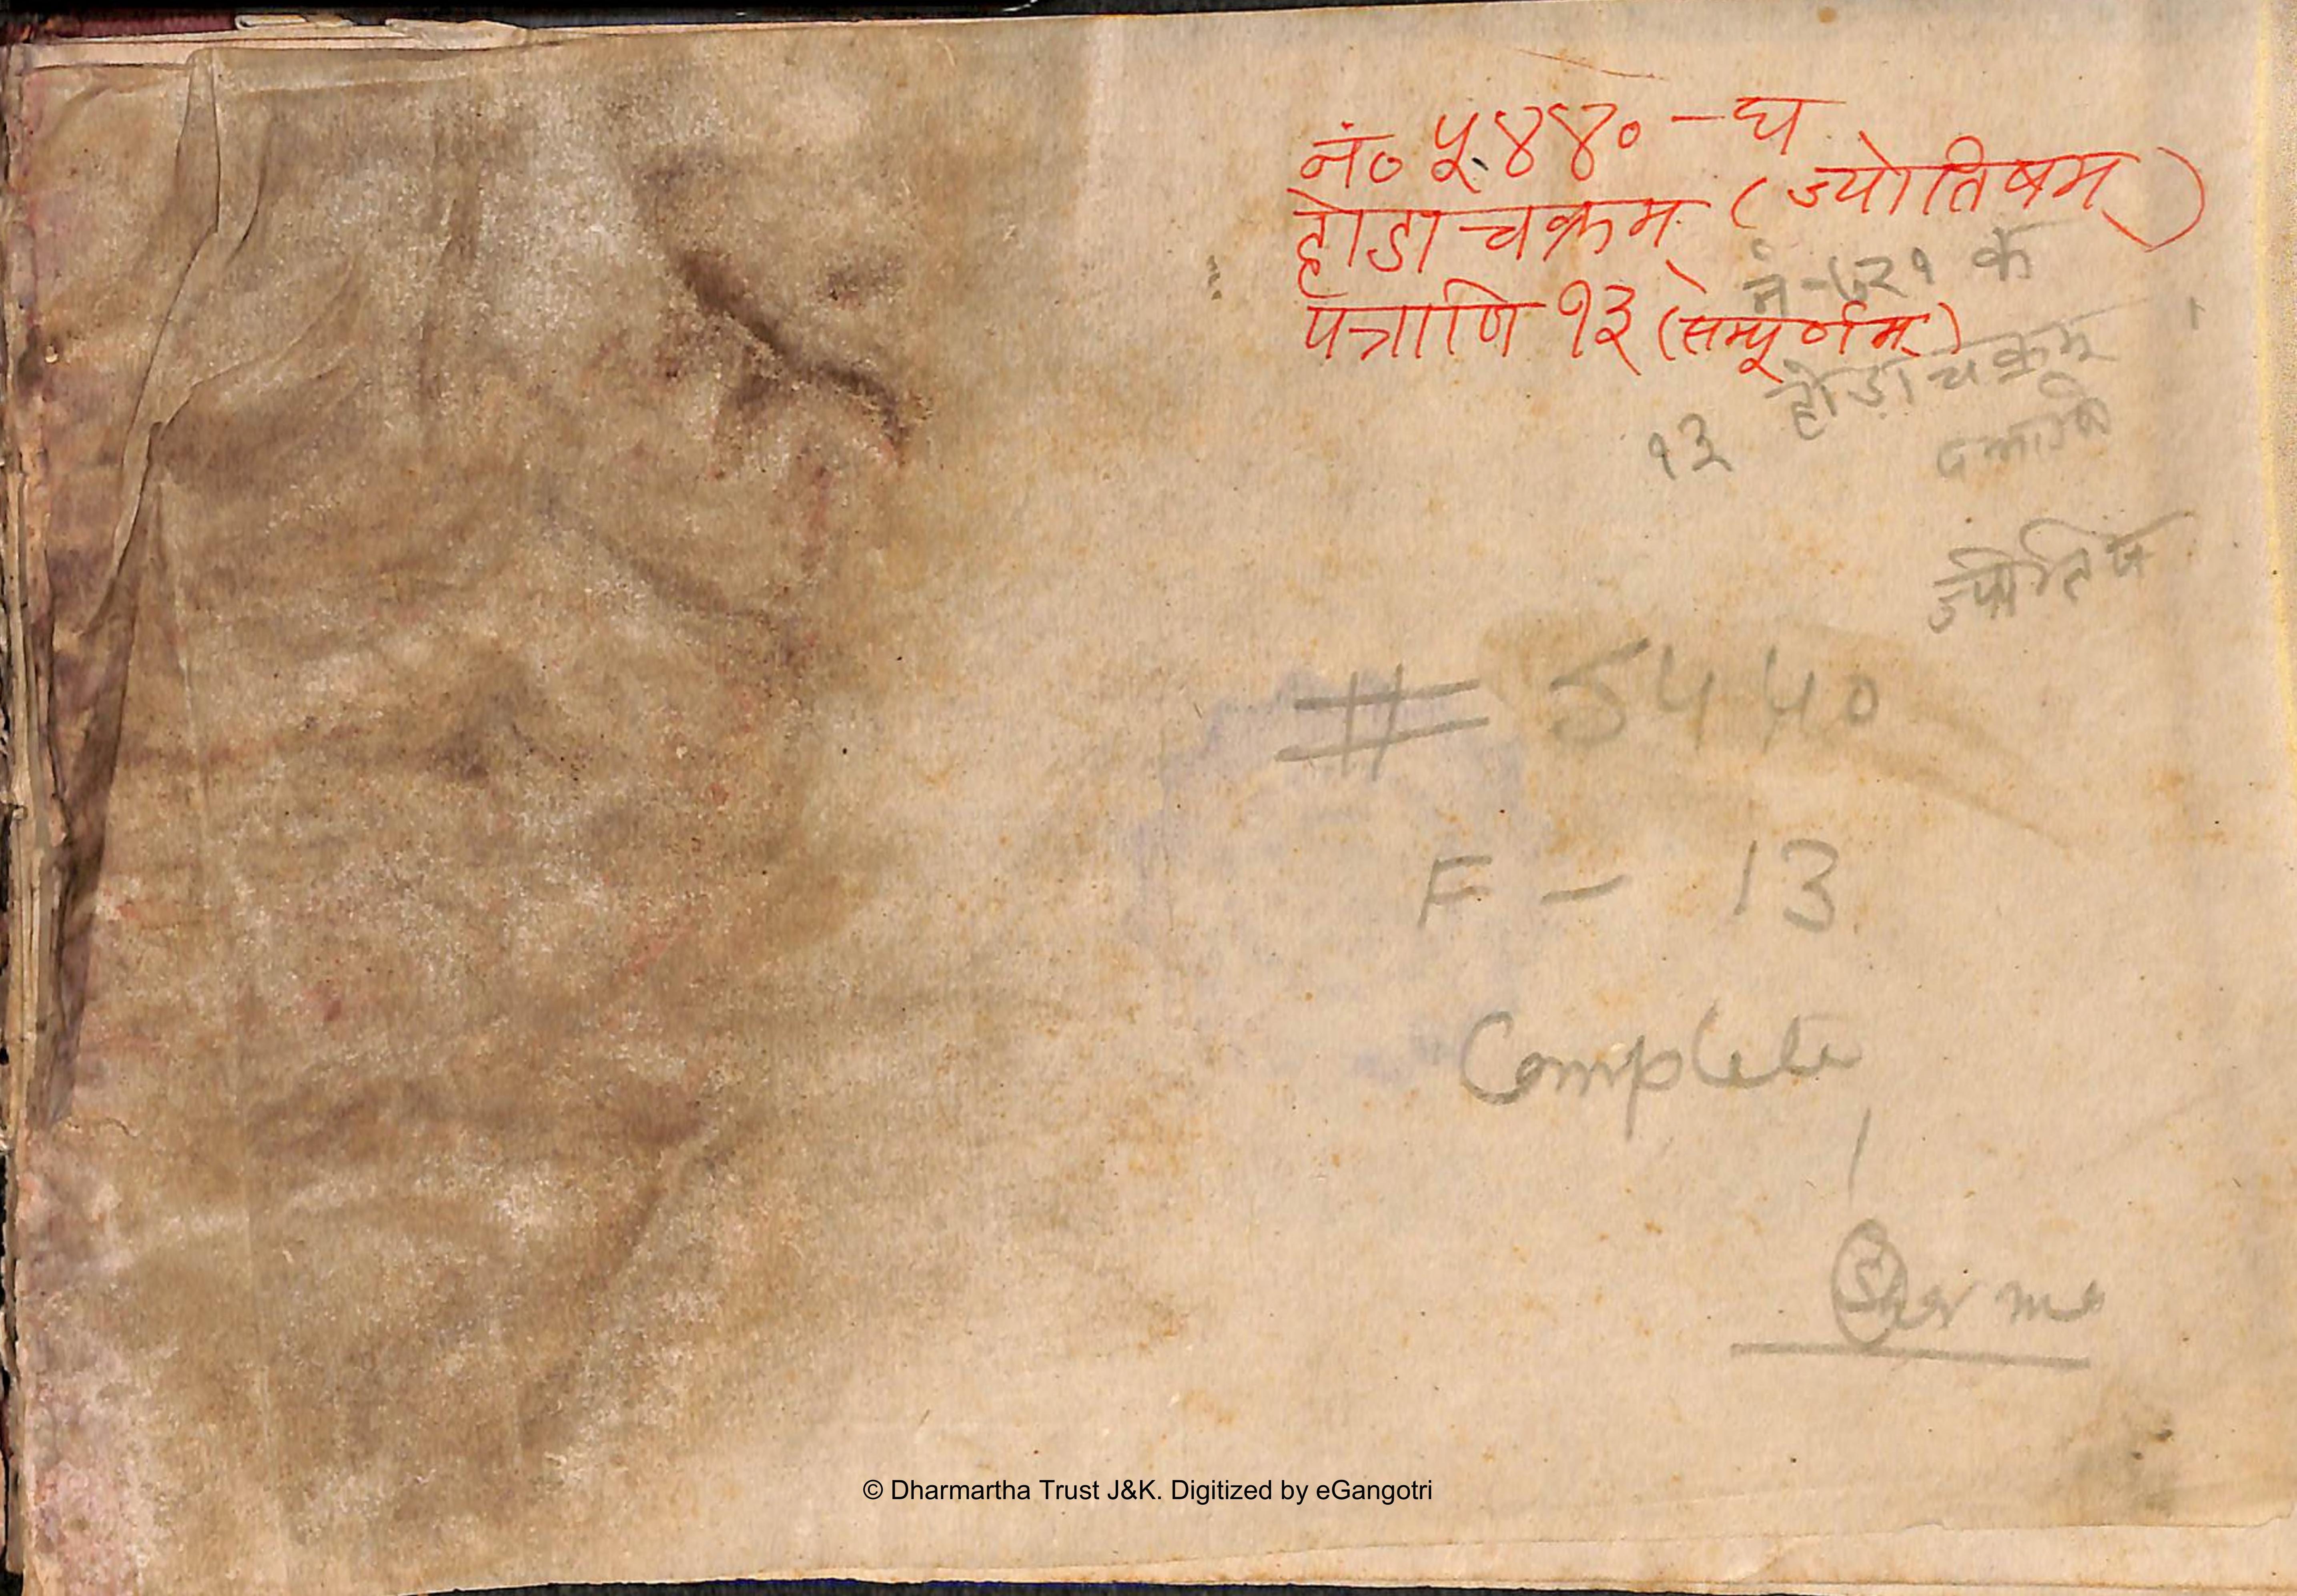 नं० ५४४० - घ
होडाचक्रम् (ज्योतिषम्)
पत्राणि १३ (सम्पूर्णम्)
नं - ६२१ के
होडाचक्रम्
१३
ज्योतिष
# 5440
F - 13
Complete
Sharma
© Dharmartha Trust J&K. Digitized by eGangotri